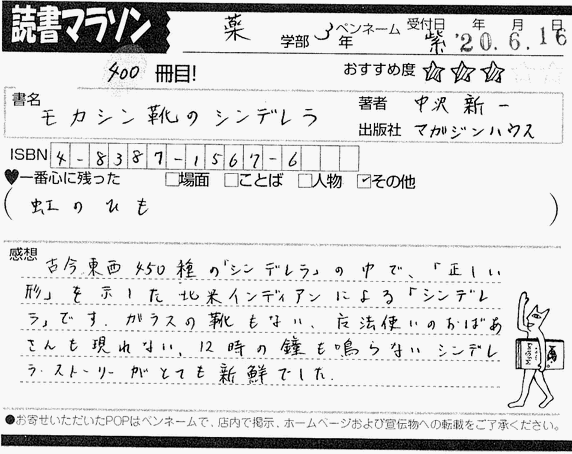 読書マラソン
薬 学部 3年 ペンネーム 紫 受付日 年 月 日 '20.6.16
400 冊目! おすすめ度 ☆☆☆
書名 モカシン靴のシンデレラ
著者 中沢新一
出版社 マガジンハウス
ISBN 4-8387-1567-6
♥一番心に残った □場面 □ことば □人物 ☑その他
(虹のひも)
感想 古今東西450種の「シンデレラ」の中で、「正しい
形」を示した北米インディアンによる「シンデレ
ラ」です。ガラスの靴もない、魔法使いのおばあ
さんも現れない、12時の鐘も鳴らないシンデレ
ラ・ストーリーがとても新鮮でした.
●お寄せいただいたPOPはペンネームで、店内で掲示、ホームページおよび宣伝物への転載をご了承ください。